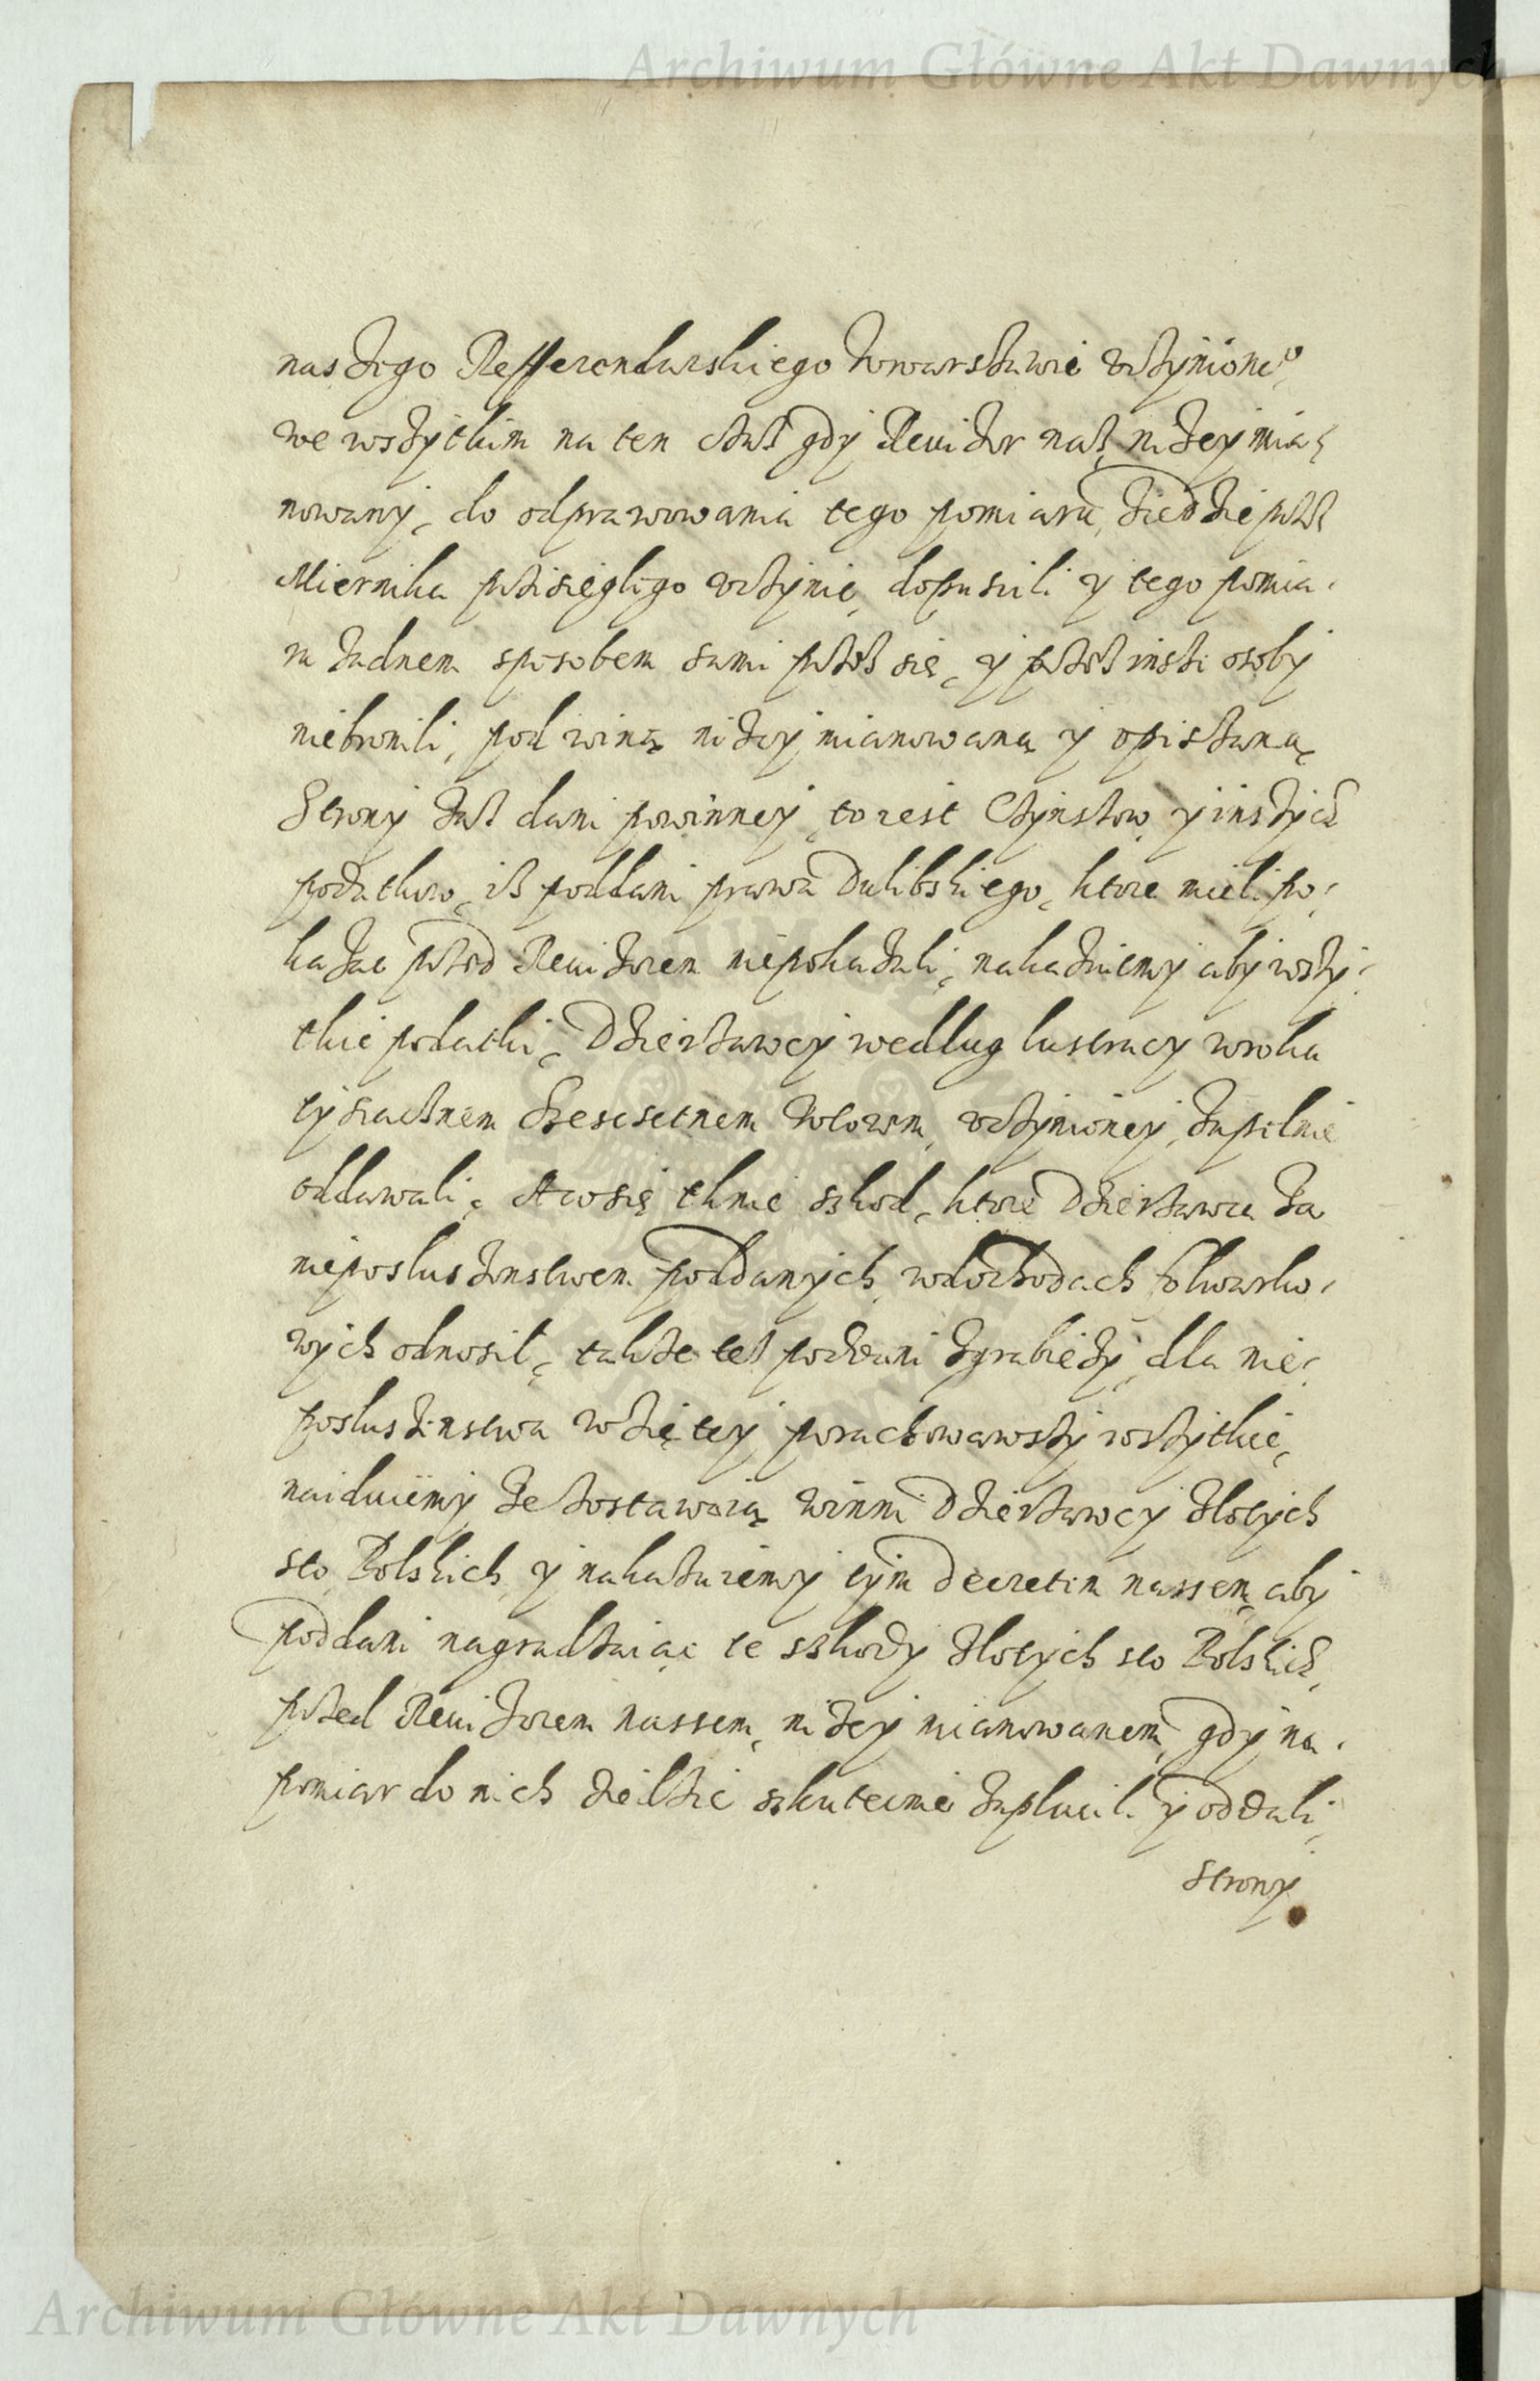 Archiwum Główne Akt Dawnych
naszego Refferendarskiego wWarszawie vczÿnione°
we wszÿtkim na ten czas gdÿ Reuizor nasz niżeÿ mia-
nowanÿ, do odprawowania tego pomiaru ziedzie przez
Miernika przisięgłego vczÿnic, dopuscili ÿ tego pomia-
ru żadnem sposobem sami przez się, ÿ przez insze osobÿ
niebronili, pod winą niżeÿ mianowaną ÿ opiszaną
Stronÿ zas dani powinneÿ to iest Czÿnszow ÿ inszÿch
podatkow, isz poddani prawa Dulibskiego, ktore mieli po-
kazac przed Reuizorem niepokazali, nakazuiemÿ abÿ wszÿ-
tkie podatki, Dzierżawcÿ według lustracÿ wroku
tÿsiącznem szescsetnem vczÿnioneÿ, zupełnie
oddawali, A co się tknie szkod, ktore Dzierżawca za
nieposłuszenstwem poddanÿch, wdochodach folwarko-
wÿch odnosił, także tesz poddani zgrabieżÿ, dla nie-
posłuszenstwa wzięteÿ porachowawszÿ wszÿtkie,
naiduiemÿ że zostawaią winni Dzierżawcÿ złotÿch
sto Polskich ÿ nakazuiemÿ tÿm Decretem nassem, abÿ
poddani nagradzaiąc te szkodÿ złotÿch sto Polskich,
przed Reuizorem nassem, niżeÿ mianowanem, gdÿ na
pomiar do nich zieżdzie skutecznie zapłacili ÿ oddali,
Stronÿ
Archiwum Główne Akt Dawnych